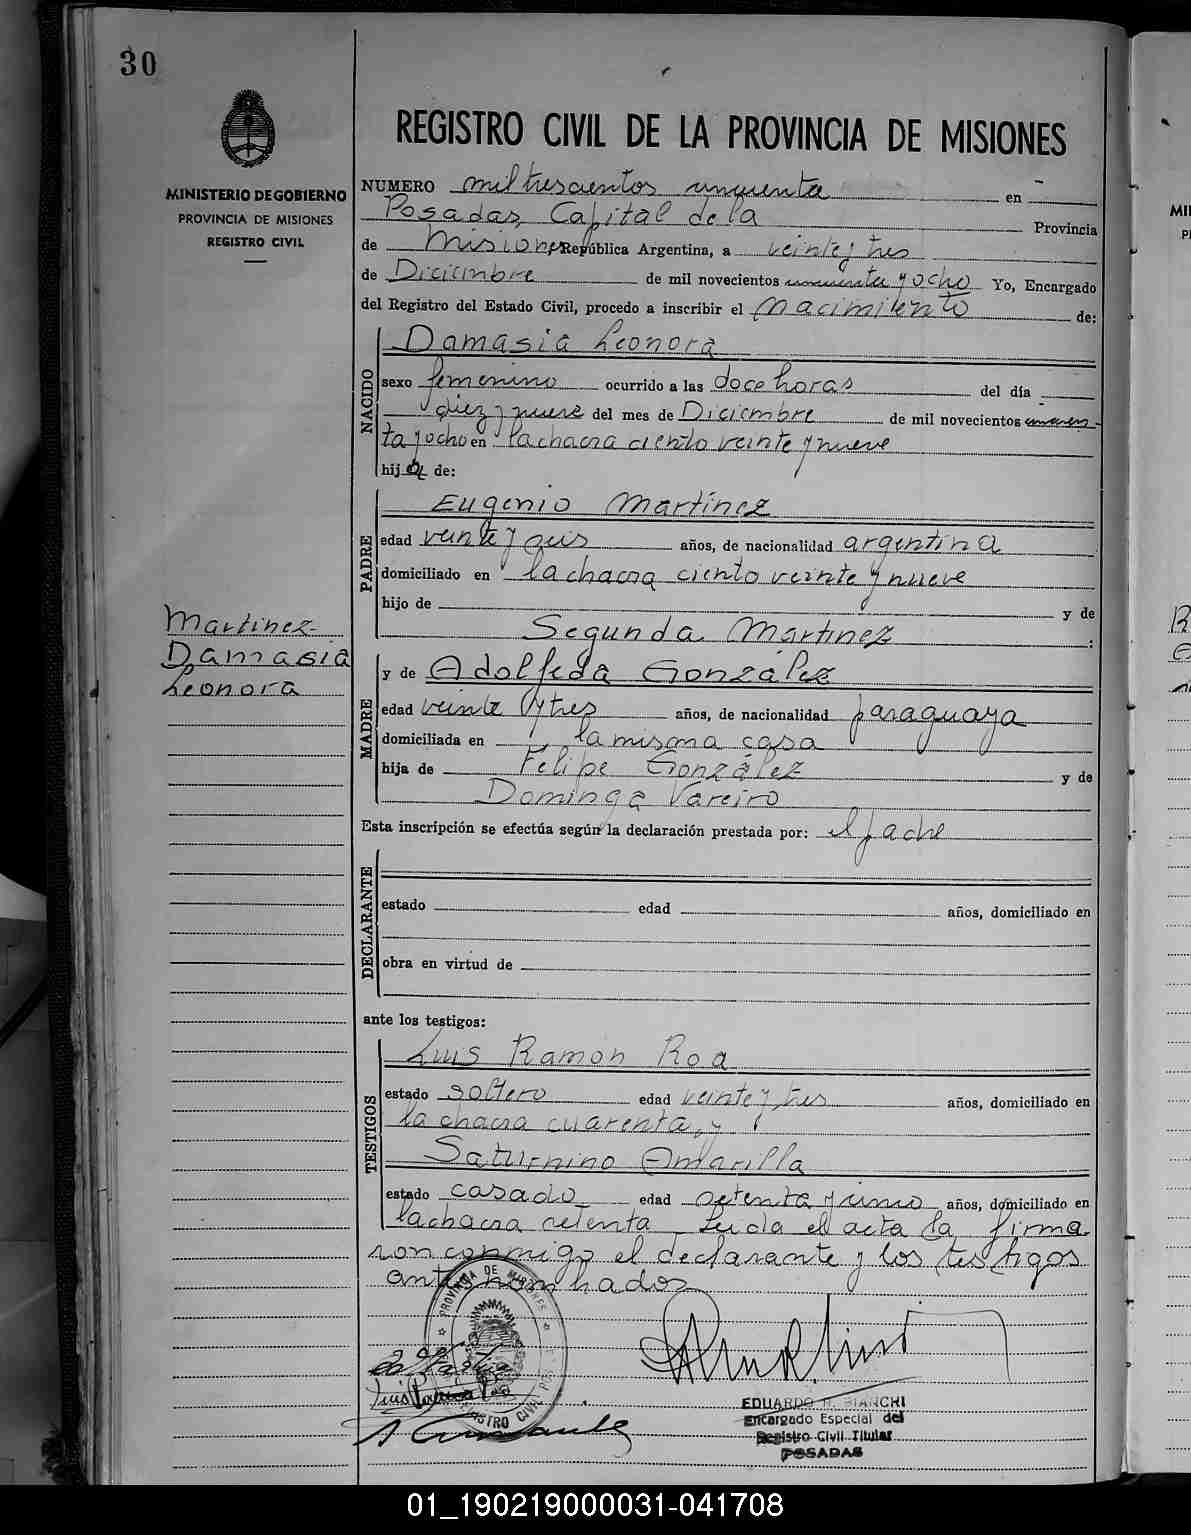 30
MINISTERIO DE GOBIERNO
PROVINCIA DE MISIONES
REGISTRO CIVIL
Martinez
Damasia
Leonora
REGISTRO CIVIL DE LA PROVINCIA DE MISIONES
NUMERO mil trescientos cincuenta en
Posadas, Capital de la Provincia
de Misiones, República Argentina, a veinte y tres
de Diciembre de mil novecientos cincuenta y ocho Yo, Encargado
del Registro del Estado Civil, procedo a inscribir el nacimiento de:
NACIDO
Damasia Leonora
sexo femenino ocurrido a las doce horas del día
diez y nueve del mes de Diciembre de mil novecientos cincuen-
ta y ocho en la chacra ciento veinte y nueve
hija de:
PADRE
Eugenio Martínez
edad veinte y seis años, de nacionalidad argentina
domiciliado en la chacra ciento veinte y nueve
hijo de y de
Segunda Martinez :
MADRE
y de Adolfeda González
edad veinte y tres años, de nacionalidad paraguaya
domiciliada en la misma casa
hija de Felipe González y de
Dominga Vareiro
Esta inscripción se efectúa según la declaración prestada por: el padre
DECLARANTE
estado edad años, domiciliado en
obra en virtud de
ante los testigos:
TESTIGOS
Luis Ramón Roa
estado soltero edad veinte y tres años, domiciliado en
la chacra cuarenta, y
Saturnino Amarilla
estado casado edad setenta y uno años, domiciliado en
la chacra setenta Leida el acta la firma
ron conmigo el declarante y los testigos
antes nombrados
PROVINCIA DE MISIONES
REGISTRO CIVIL
EDUARDO R. BIANCHI
Encargado Especial del
Registro Civil Titular
POSADAS
01_190219000031-041708